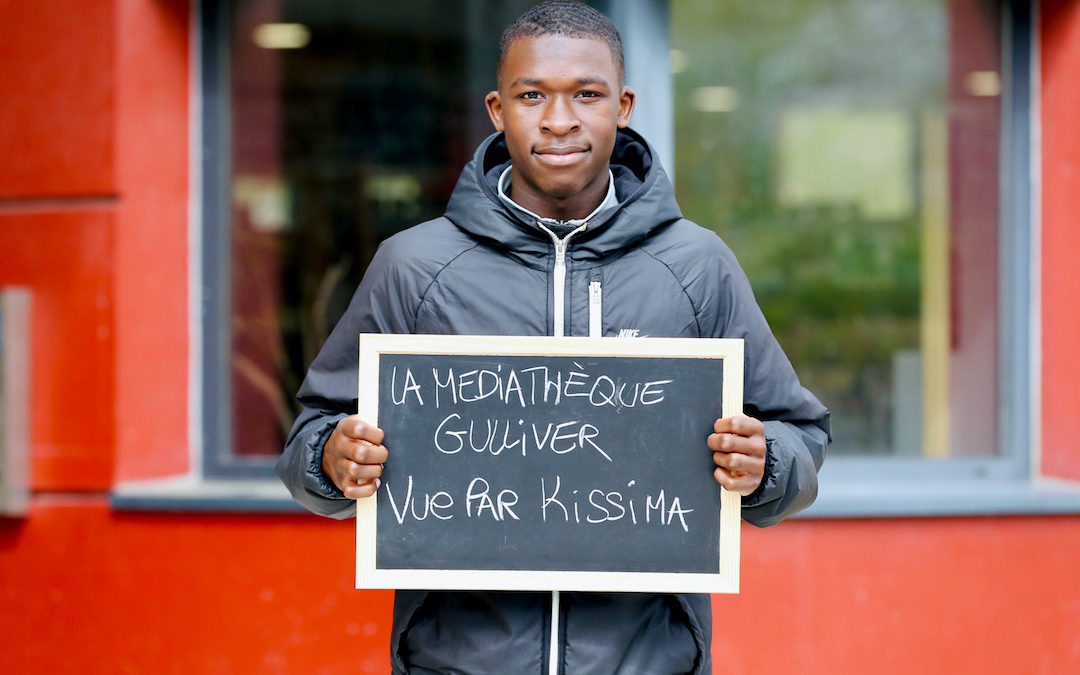 NIKE
LA MEDiATHÈQUE
GULLiVER
VUE PAR KissiMA